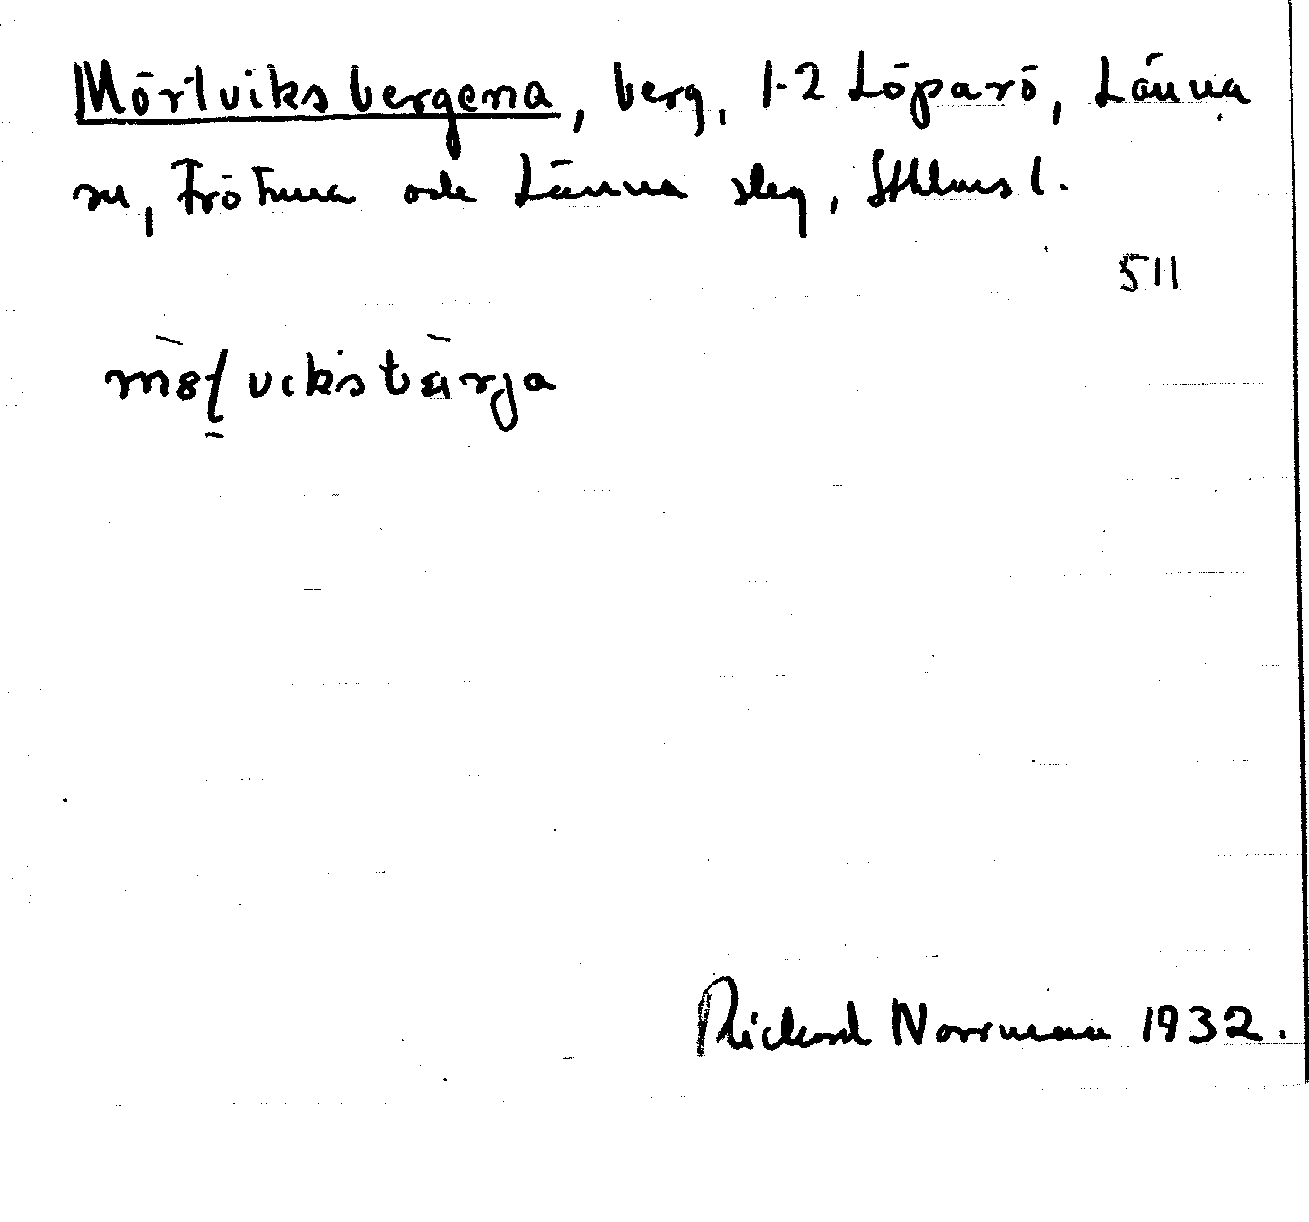 Mörtviksbergena, berg, 1-2 Löparö, Länna
sn, Frötuna och Länna slg, Sthlms l.
511
Rickard Norrman 1932.